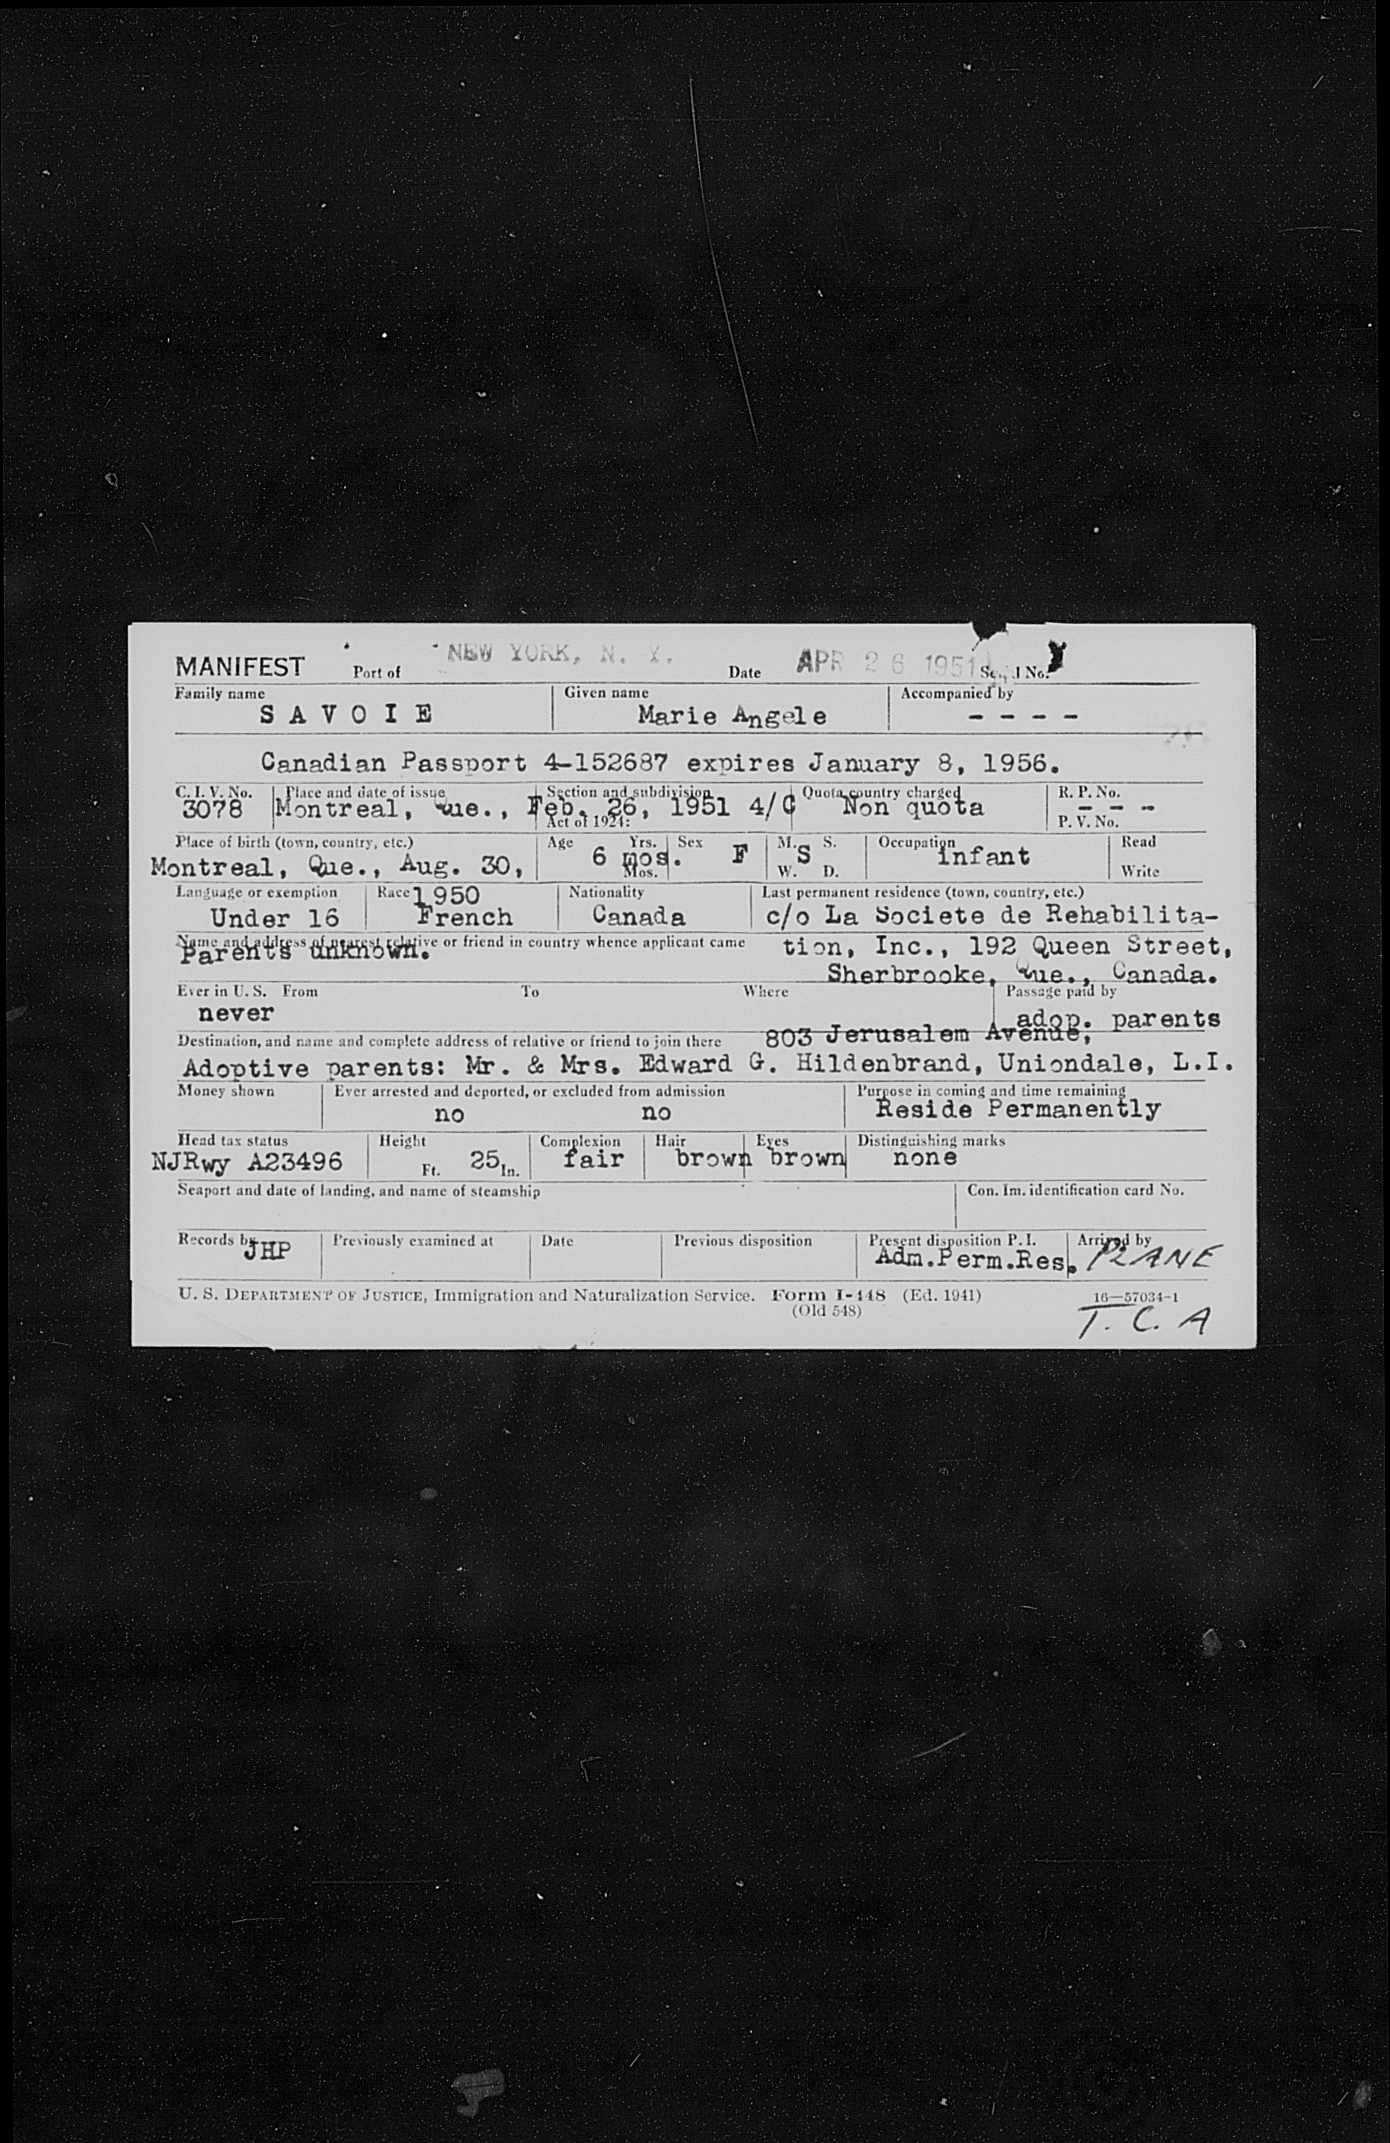 MANIFEST Port of NEW YORK, N. Y. Date APR 26 1951 No.
Family name Given name Accompanied by
SAVOIE Marie Angele - - - -
Canadian Passport 4-152687 expires January 8, 1956.
C. I. V. No. Place and date of issue Section and subdivision Quota country charged R. P. No.
3078 Montreal, Que., Feb. 26, 1951 4/C Non quota - - -
Act of 1924: P. V. No.
Place of birth (town, country, etc.) Age Yrs. Sex M. S. Occupation Read
Montreal, Que., Aug. 30, 6 mos. F S infant
Mos. W. D. Write
Language or exemption Race 1950 Nationality Last permanent residence (town, country, etc.)
Under 16 French Canada c/o La Societe de Rehabilita-
Name and address of nearest relative or friend in country whence applicant came tion, Inc., 192 Queen Street,
Parents unknown.
Sherbrooke, Que., Canada.
Ever in U. S. From To Where Passage paid by
never adop. parents
Destination, and name and complete address of relative or friend to join there 803 Jerusalem Avenue,
Adoptive parents: Mr. & Mrs. Edward G. Hildenbrand, Uniondale, L.I.
Money shown Ever arrested and deported, or excluded from admission Purpose in coming and time remaining
no no Reside Permanently
Head tax status Height Complexion Hair Eyes Distinguishing marks
NJRwy A23496 Ft. 25 In. fair brown brown none
Seaport and date of landing, and name of steamship Con. Im. identification card No.
Records by Previously examined at Date Previous disposition Present disposition P. I. Arrived by
JHP Adm.Perm.Res. PLANE
U. S. DEPARTMENT OF JUSTICE, Immigration and Naturalization Service. Form I-448 (Ed. 1941) 16—57034-1
(Old 548)
T. C. A